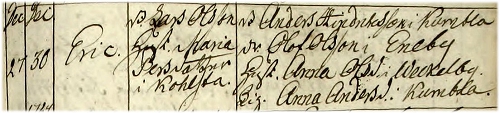 Dec Dec
27 30 Eric.
Lars Olsson
Hust. Maria
Persdotter
i
Anders Hindricksson i Kumbla
Olof Olsson i Eneby
Hust. Anna Olsd. i Weckelby.
Pig. Anna Andersd. i Kumbla.